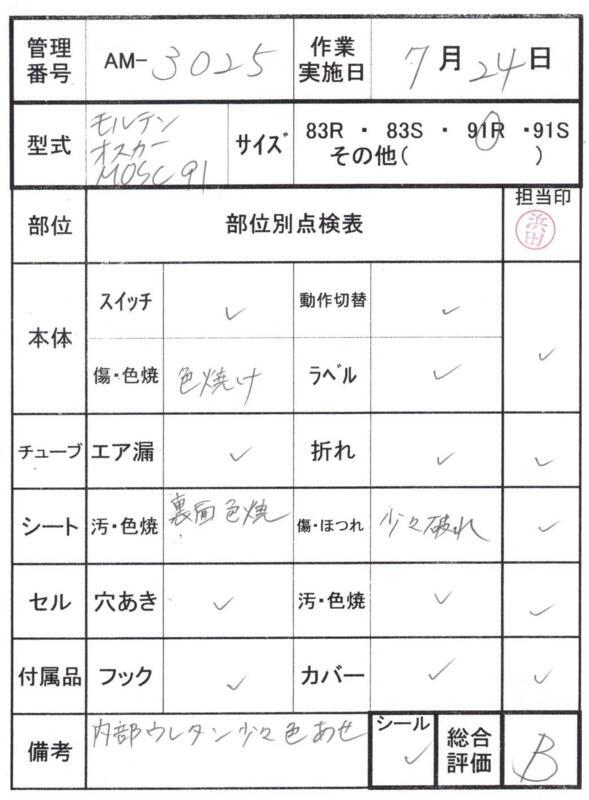 管理番号 AM-3025 作業実施日 7月24日
型式 モルテン オスカー MOSC91 サイズ 83R ・ 83S ・ 91R ・91S
その他( )
部位 部位別点検表 担当印 浜田
本体 スイッチ ✓ 動作切替 ✓ ✓
傷・色焼 色焼け ラベル ✓
チューブ エア漏 ✓ 折れ ✓ ✓
シート 汚・色焼 裏面色焼 傷・ほつれ 少々破れ ✓
セル 穴あき ✓ 汚・色焼 ✓ ✓
付属品 フック ✓ カバー ✓ ✓
備考 内部ウレタン少々色あせ シール ✓ 総合評価 B